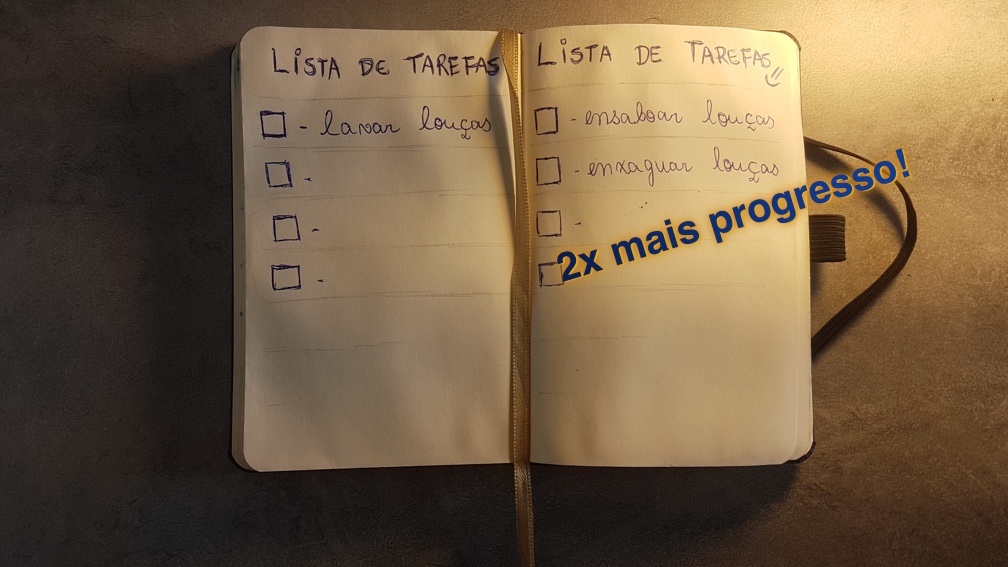 LISTA DE TAREFAS
- lavar louças
-
-
-
LISTA DE TAREFAS
- ensaboar louças
- enxaguar louças
-
2x mais progresso!